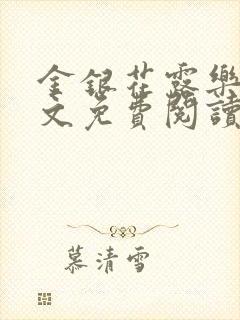 金銀花露樂
文免費閱讀
慕清雪